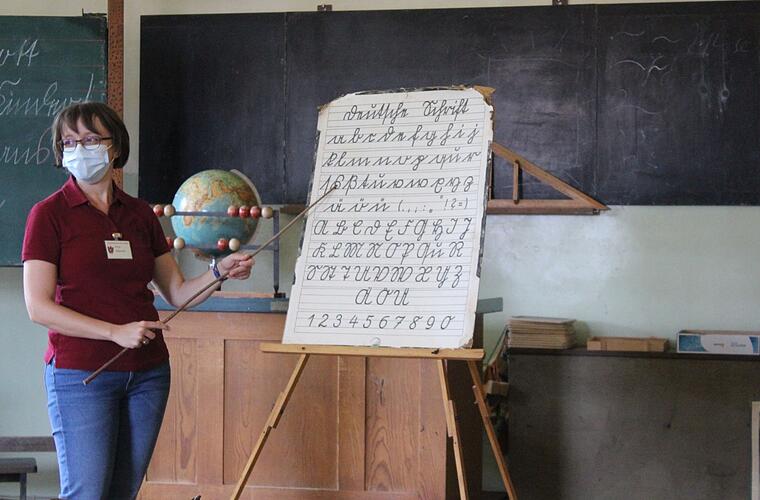 Deutsche Schrift
a b c d e f g h i j
k l m n o p q u r
ſ s ß t u v w x y z
ä ö ü ( . , ; : „ “ ! ? = )
A B C D E F G H I J
K L M N O P Qu R
S St T U V W X Y Z
Ä Ö Ü
1 2 3 4 5 6 7 8 9 0